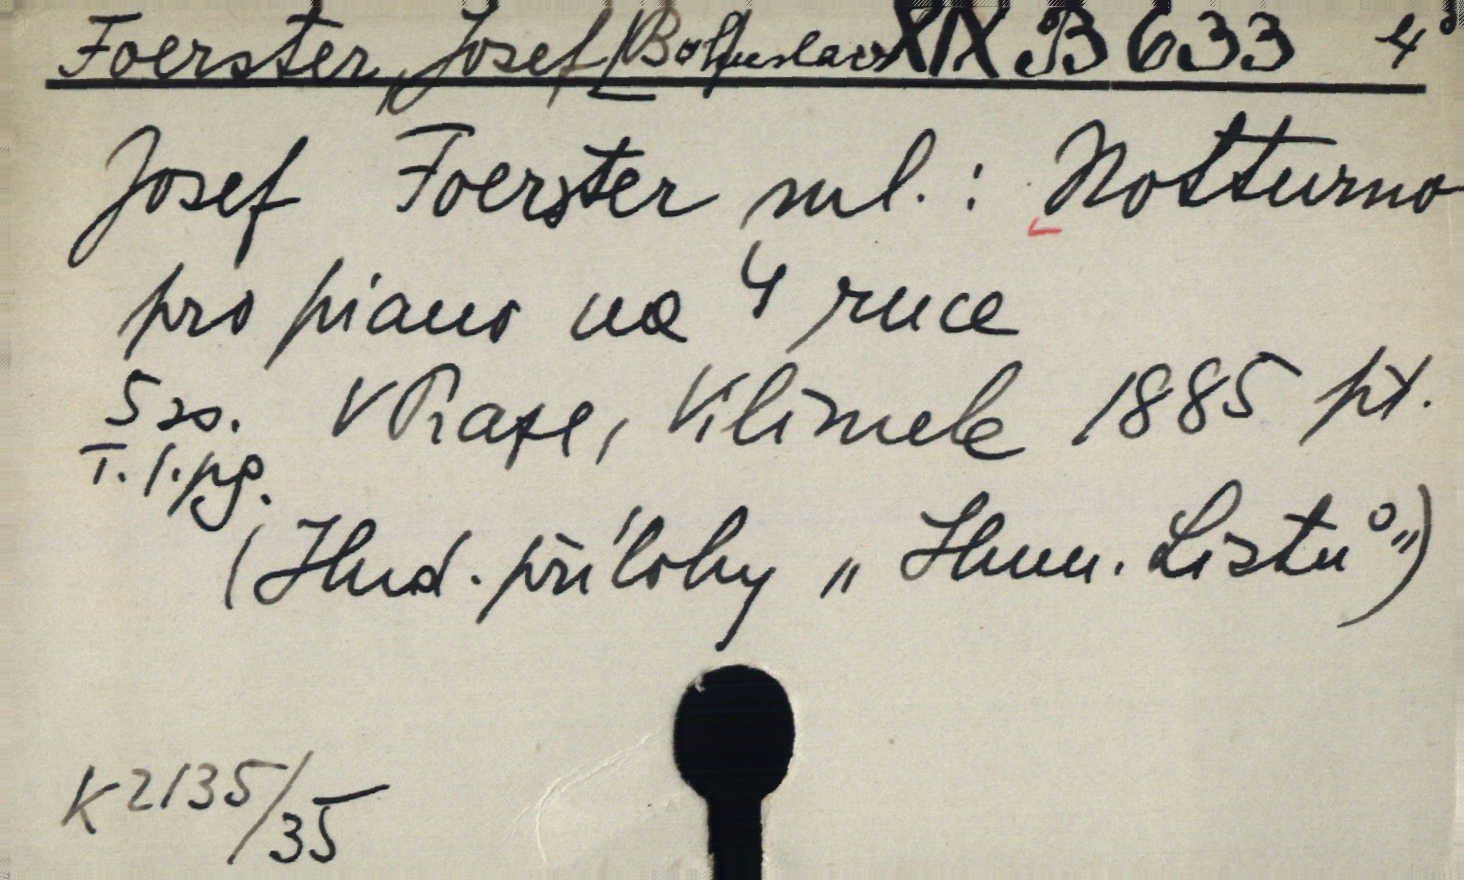 Foerster, Josef [Bohuslav] XIX B 633 4°
Josef Foerster ml.: Notturno
pro piano na 4 ruce
5 s. V Praze, Vilímek 1885 pt.
T. l. pg.
(Hud. přílohy „Hum. Listů")
K 2135/35